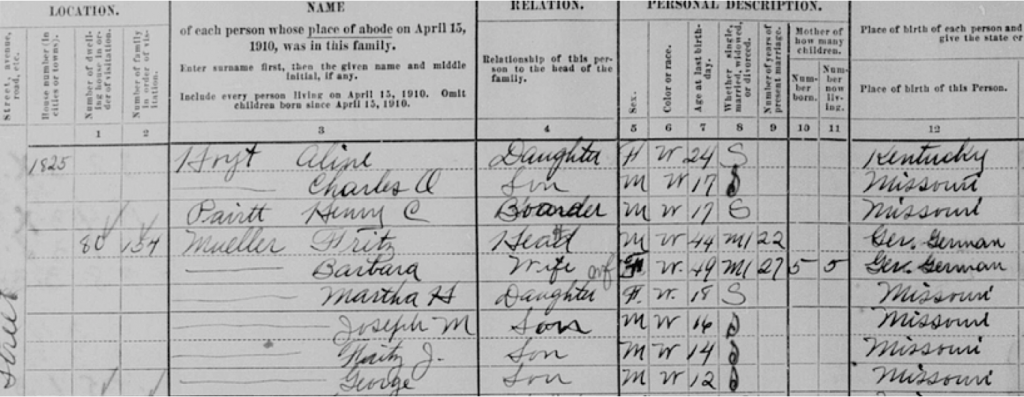 LOCATION.
NAME
RELATION.
PERSONAL DESCRIPTION.
of each person whose place of abode on April 15,
1910, was in this family.
Enter surname first, then the given name and middle
initial, if any.
Include every person living on April 15, 1910. Omit
children born since April 15, 1910.
Relationship of this per-
son to the head of the
family.
Street, avenue,
road, etc.
House number (in
cities or towns).
Number of dwell-
ing house in or-
der of visitation.
Number of family
in order of vis-
itation.
Sex.
Color or race.
Age at last birth-
day.
Whether single,
married, widowed,
or divorced.
Number of years of
present marriage.
Mother of
how many
children.
Num-
ber
born.
Num-
ber
now
liv-
ing.
Place of birth of each person and
give the state or
Place of birth of this Person.
1 2 3 4 5 6 7 8 9 10 11 12
1825 Hoyt Aline Daughter F W 24 S Kentucky
Charles O Son M W 17 S Missouri
Henry C Boarder M W 17 S Missouri
Mueller Fritz Head M W 44 M1 22 Ger. German
Barbara Wife F W. 49 M1 27 5 5 Ger. German
Martha H Daughter F. W. 18 S Missouri
Joseph M Son M W 16 S Missouri
J. Son M W 14 S Missouri
George Son M W 12 S Missouri
Street